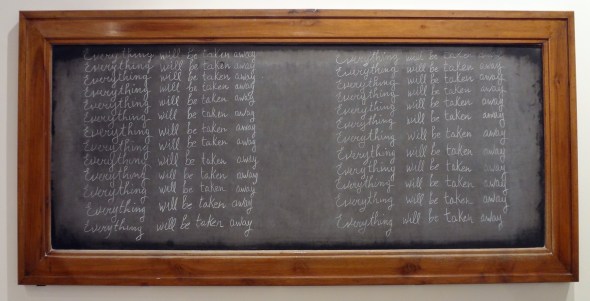 Everything will be taken away
Everything will be taken away
Everything will be taken away
Everything will be taken away
Everything will be taken away
Everything will be taken away
Everything will be taken away
Everything will be taken away
Everything will be taken away
Everything will be taken away
Everything will be taken away
Everything will be taken away
Everything will be taken away
Everything will be taken away
Everything will be taken away
Everything will be taken away
Everything will be taken away
Everything will be taken away
Everything will be taken away
Everything will be taken away
Everything will be taken away
Everything will be taken away
Everything will be taken away
Everything will be taken away
Everything will be taken away